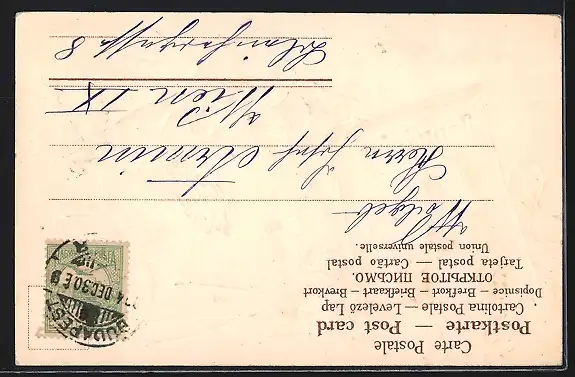 Carte Postale
Postkarte — Post card
Cartolina Postale — Levelező Lap
Dopisnice — Brefkort — Briefkaart — Brevkort
ОТКРЫТОЕ ПИСЬМО.
Tarjeta postal — Cartão postal
Union postale universelle.
BUDAPEST
DEC 30
Herrn Josef
Wien IX
8